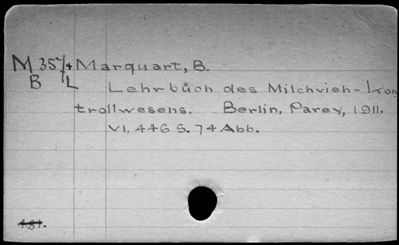 M 357/4 Marquart, B.
B L Lehrbuch des Milchvieh-Kon
trollwesens. Berlin, Parey, 1911.
VI, 446 S. 74 Abb.